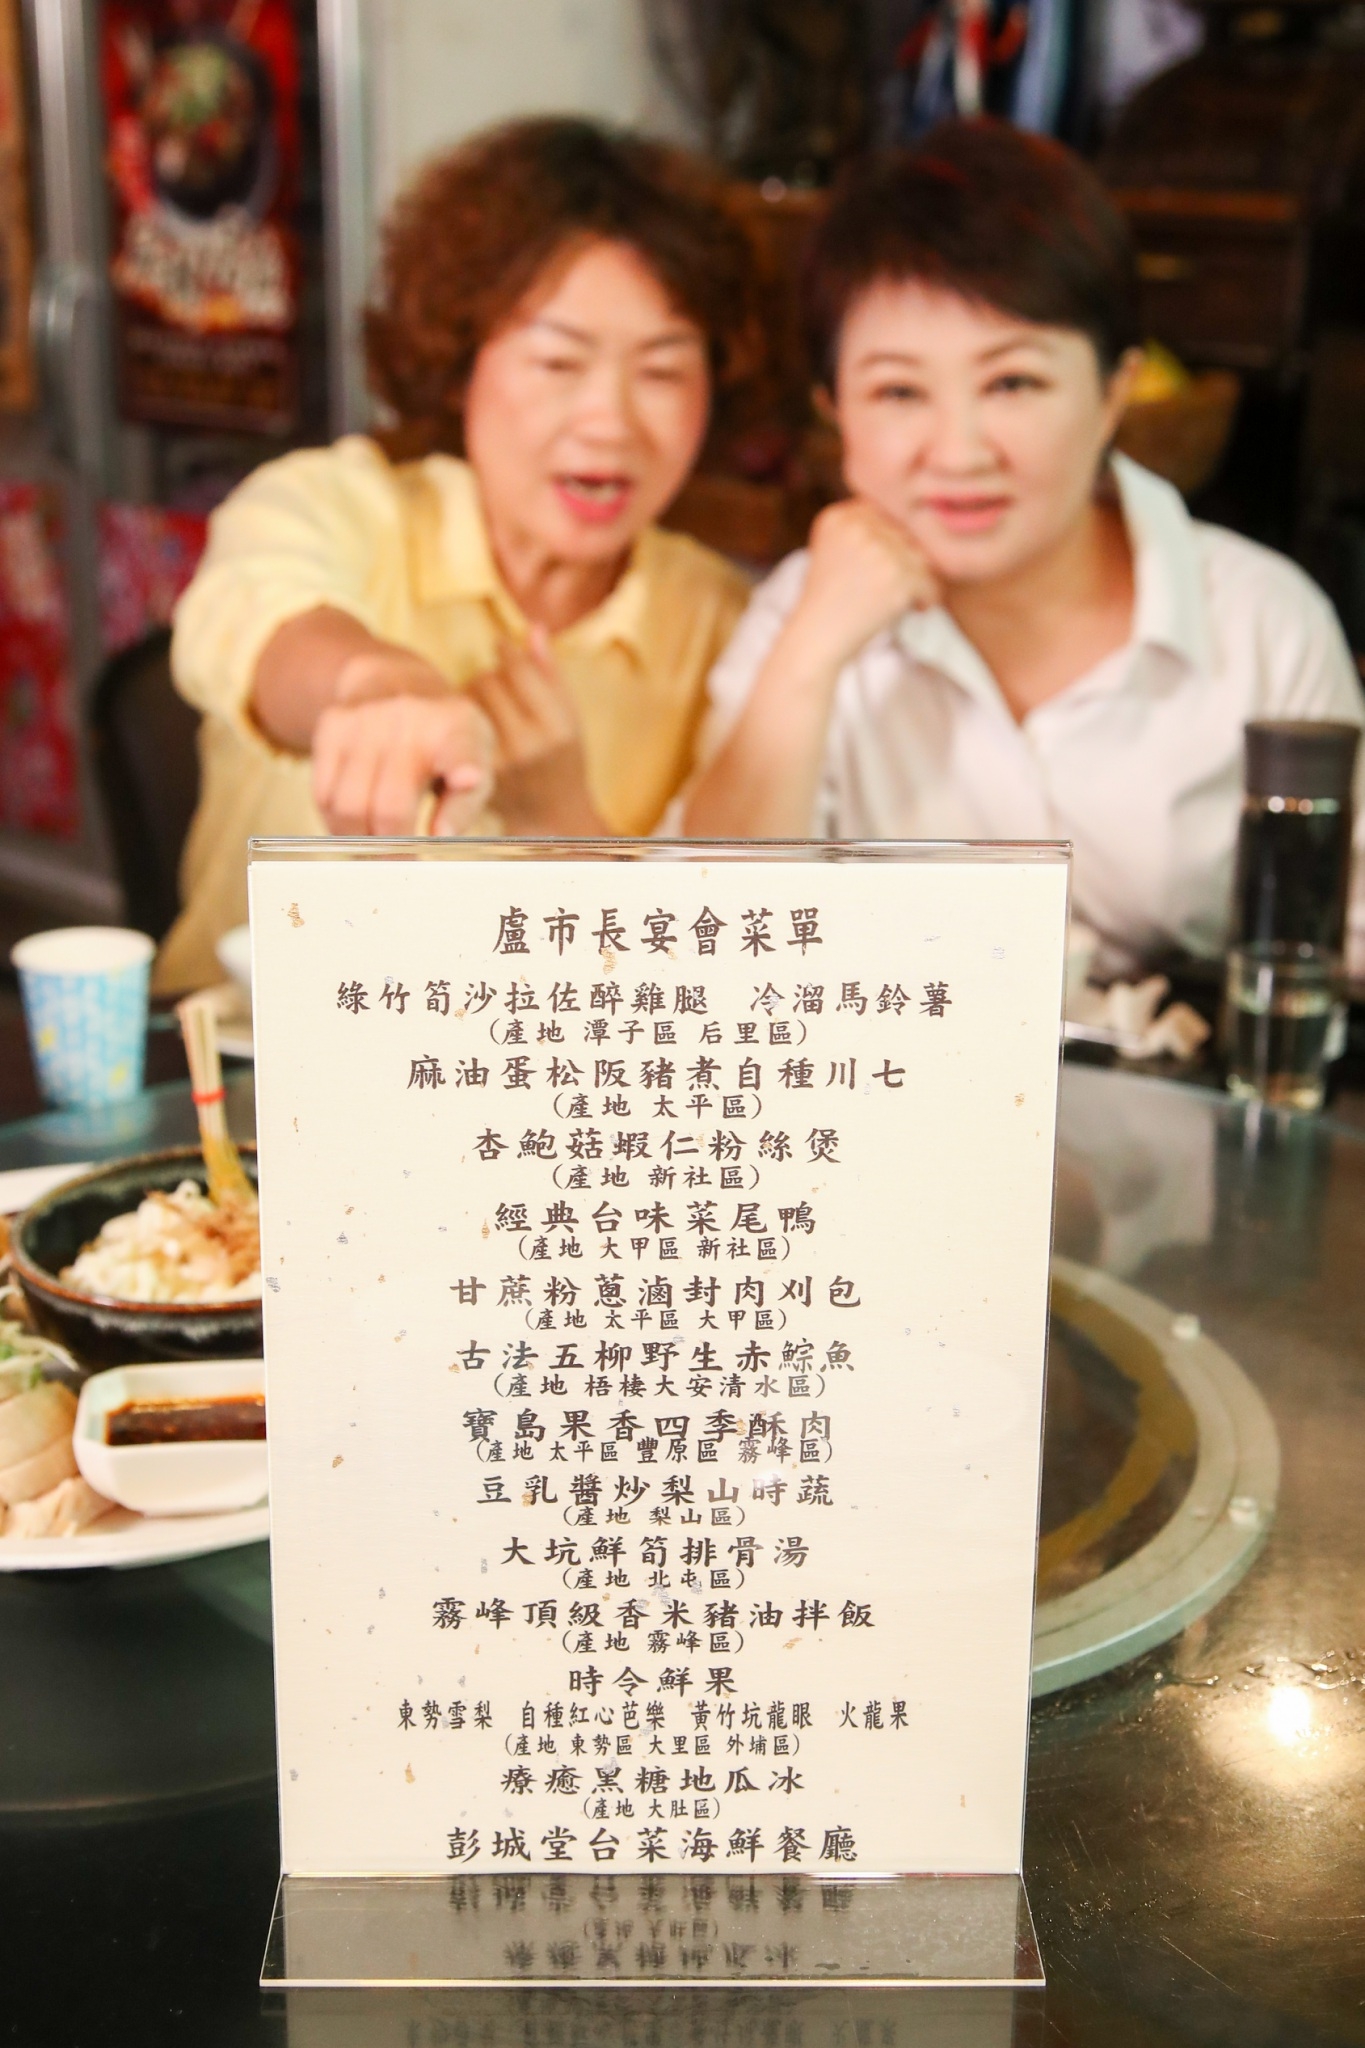 盧市長宴會菜單
綠竹筍沙拉佐醉雞腿 冷溜馬鈴薯
(產地 潭子區 后里區)
麻油蛋松阪豬煮自種川七
(產地 太平區)
杏鮑菇蝦仁粉絲煲
(產地 新社區)
經典台味菜尾鴨
(產地 大甲區 新社區)
甘蔗粉蔥滷封肉刈包
(產地 太平區 大甲區)
古法五柳野生赤鯮魚
(產地 梧棲大安清水區)
寶島果香四季酥肉
(產地 太平區 豐原區 霧峰區)
豆乳醬炒梨山時蔬
(產地 梨山區)
大坑鮮筍排骨湯
(產地 北屯區)
霧峰頂級香米豬油拌飯
(產地 霧峰區)
時令鮮果
東勢雪梨 自種紅心芭樂 黃竹坑龍眼 火龍果
(產地 東勢區 大里區 外埔區)
療癒黑糖地瓜冰
(產地 大肚區)
彭城堂台菜海鮮餐廳